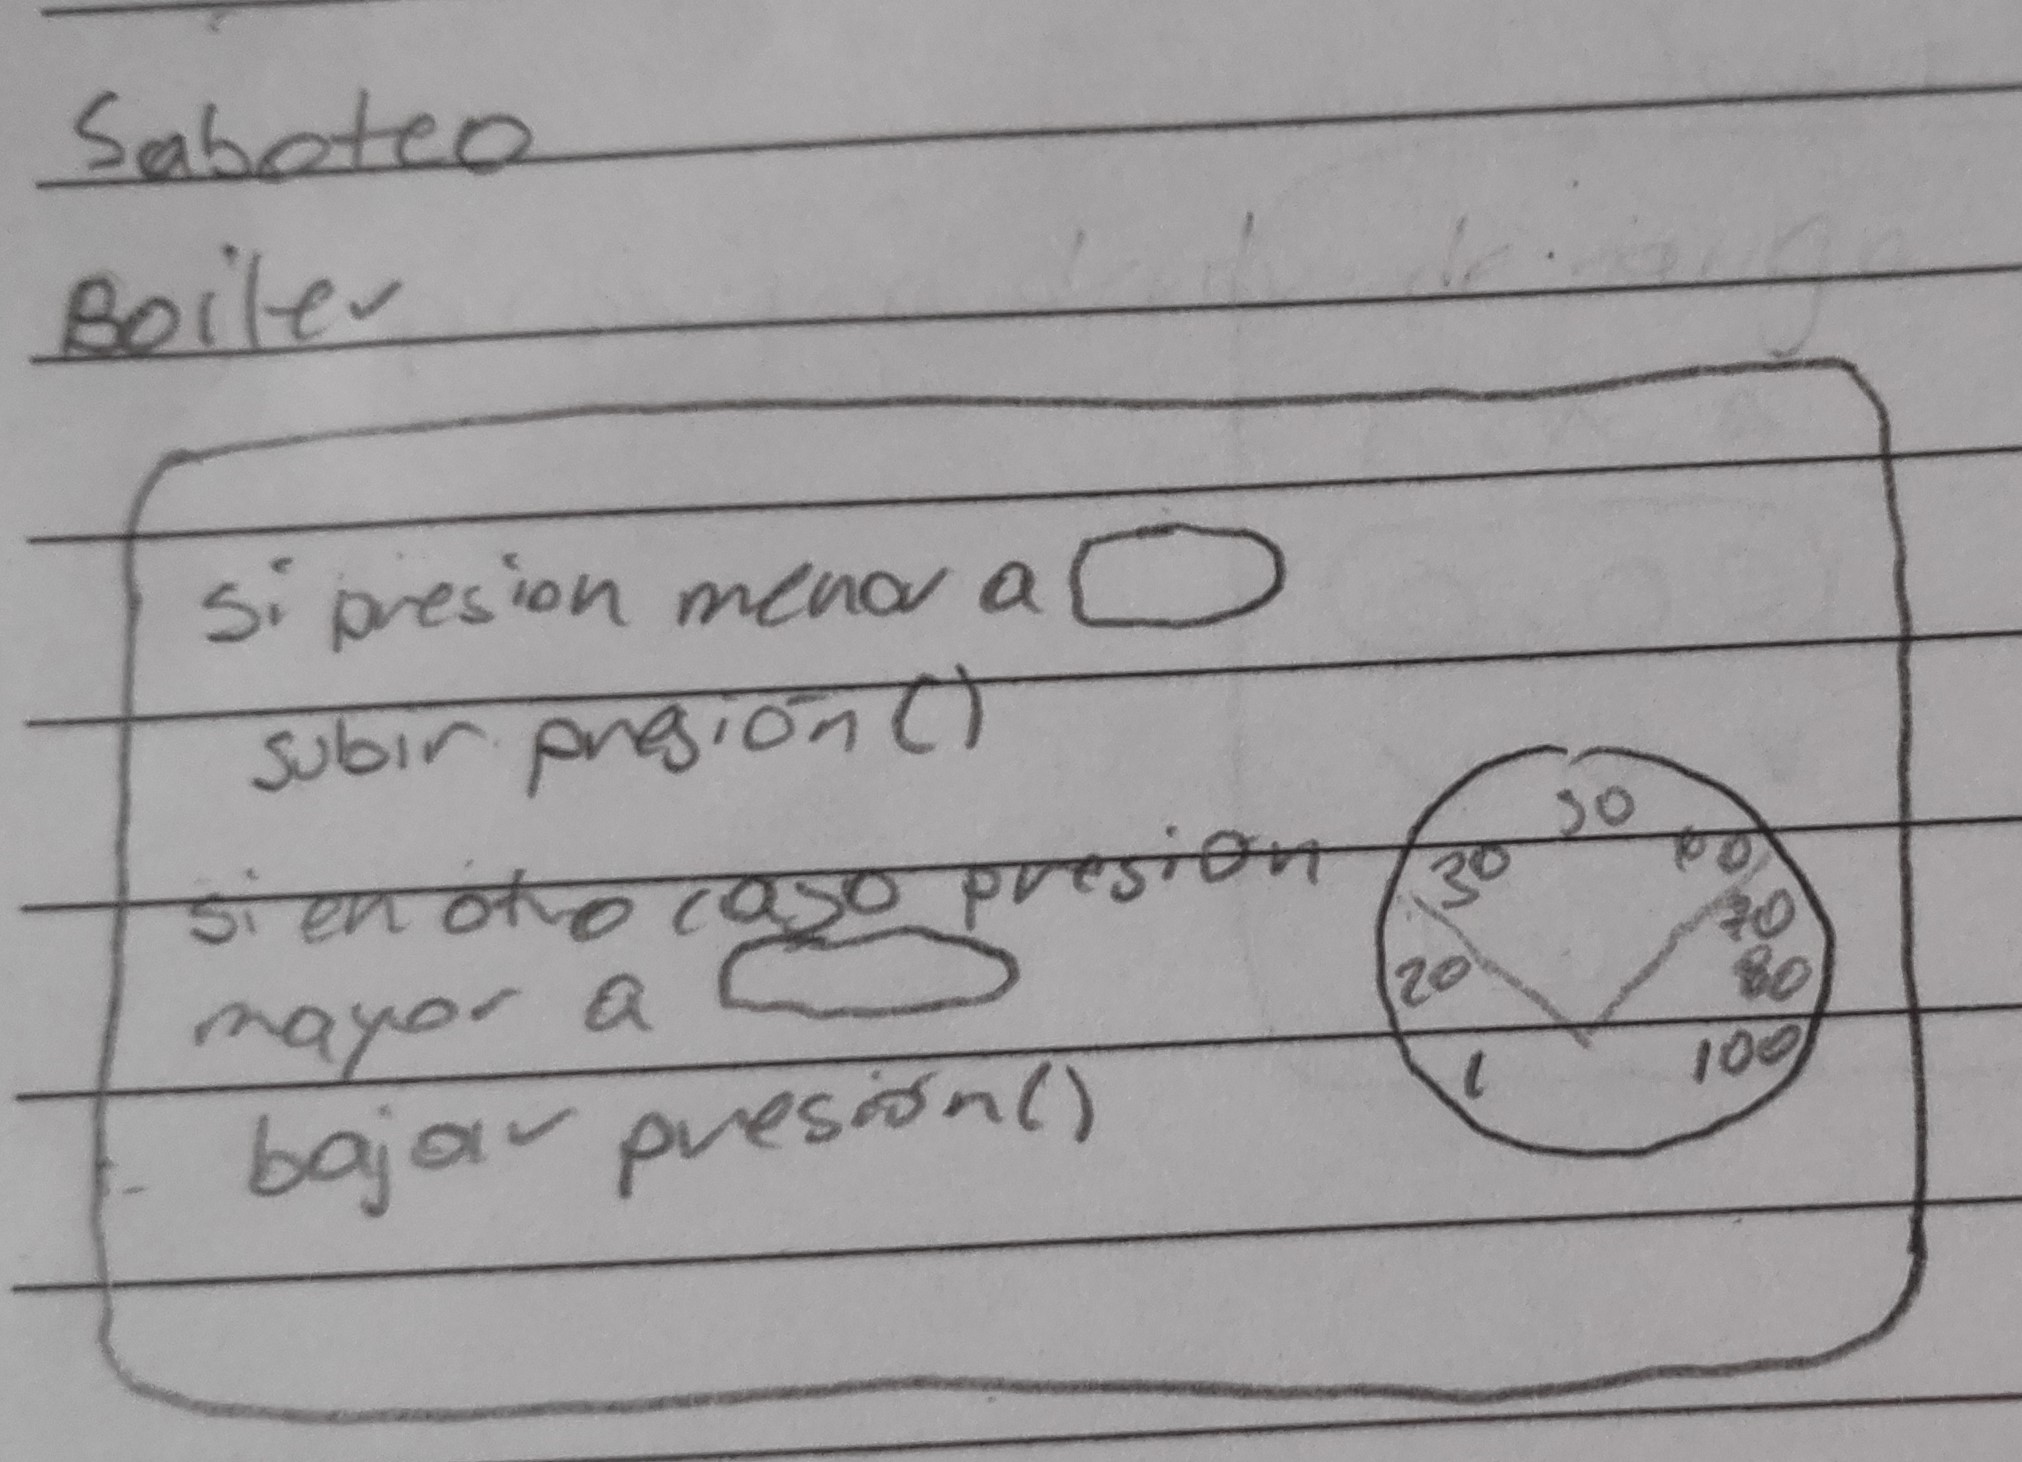 Saboteo
Boiler
si presion menor a
subir presión()
si en otro caso presión
mayor a
bajar presión()
50
30
20
70
80
1
100